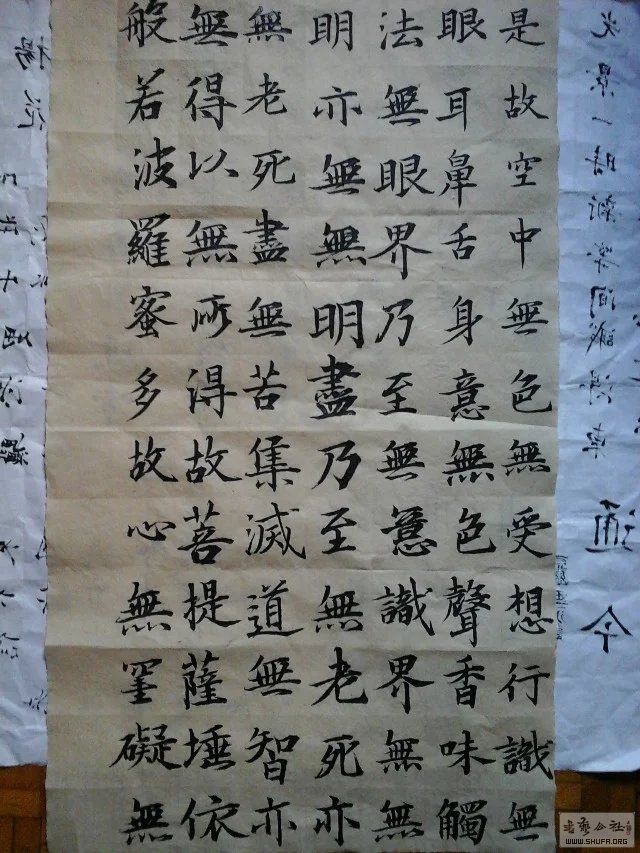 光景一時新等閒識得東
通今
是故空中無色無受想行識無
眼耳鼻舌身意無色聲香味觸
法無眼界乃至無意識界無無
明亦無無明盡乃至無老死亦
無老死盡無苦集滅道無智亦
無得以無所得故菩提薩埵依
般若波羅蜜多故心無罣礙無
楊花
書藝公社
WWW.SHUFA.ORG